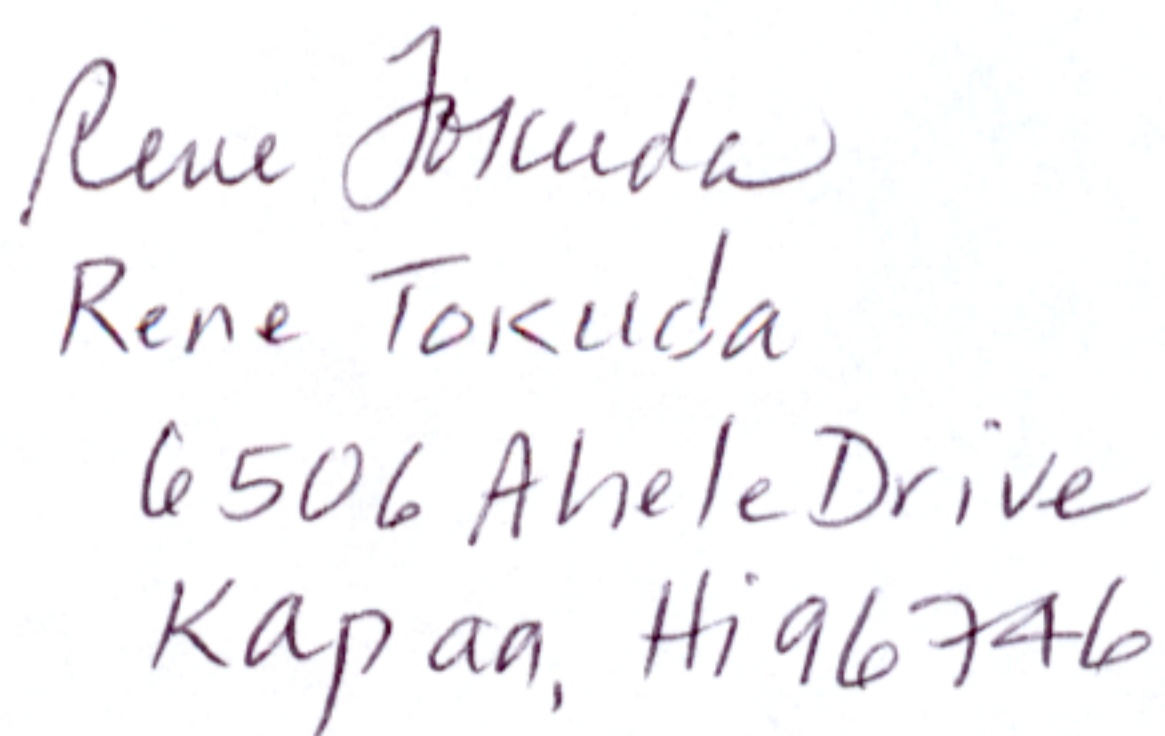 Rene Tokuda
Rene Tokuda
6506 Ahele Drive
Kapaa, Hi 96746